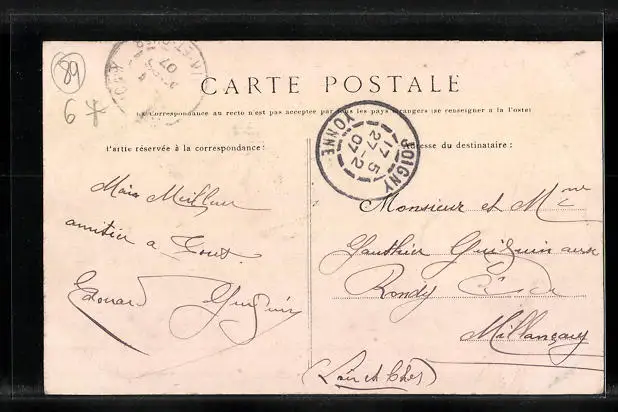 89
6 x
CARTE POSTALE
La Correspondance au recto n'est pas acceptée par tous les pays étrangers (se renseigner à la Poste)
Partie réservée à la correspondance:
Adresse du destinataire:
JOIGNY
17 5
27-2
07
YONNE
Mais Meilleur
amitier a Tout
Edouard Guiguin
Monsieur et Mme
Gauthier Guiguin aux
Rondy
Millançay
(Loir et Cher)